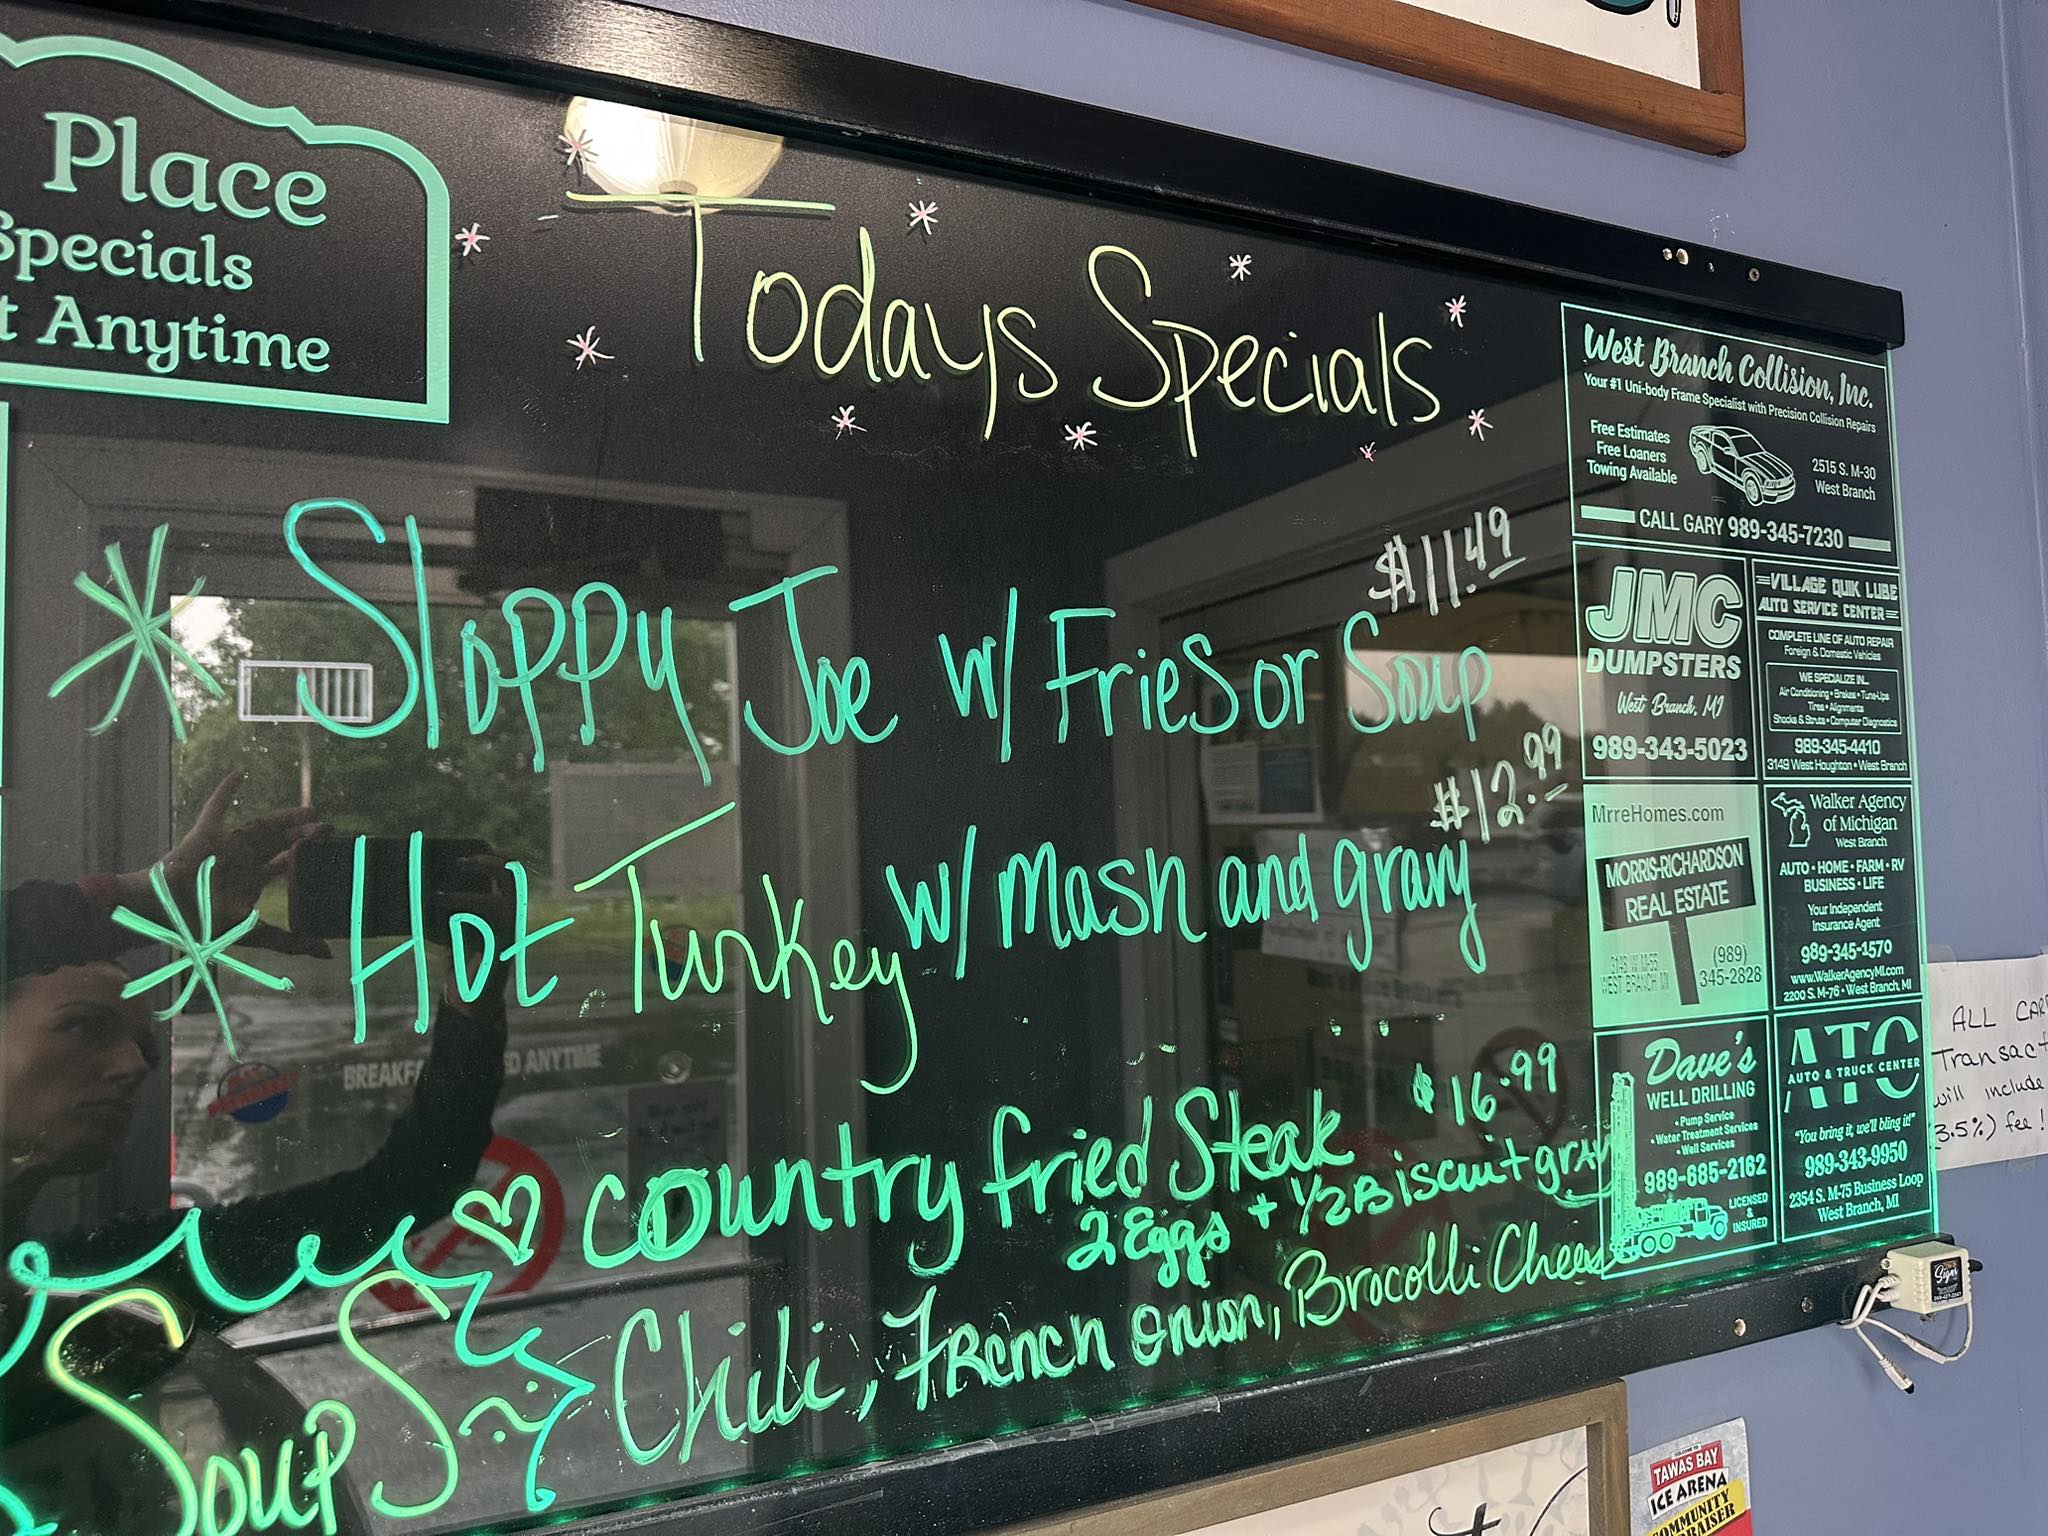 Place
Specials
t Anytime
Todays Specials
$11.49
Sloppy Joe w/ Fries or Soup
$12.99
Hot Turkey w/ mash and gravy
$16.99
country fried Steak
2 Eggs + 1/2 Biscuit gravy
Soups ~ Chili, French onion, Brocolli Cheese
BREAKF
D ANYTIME
West Branch Collision, Inc.
Your #1 Uni-body Frame Specialist with Precision Collision Repairs
Free Estimates
Free Loaners
Towing Available
2515 S. M-30
West Branch
CALL GARY 989-345-7230
JMC
DUMPSTERS
West Branch, MI
989-343-5023
VILLAGE QUIK LUBE
AUTO SERVICE CENTER
COMPLETE LINE OF AUTO REPAIR
Foreign & Domestic Vehicles
WE SPECIALIZE IN...
Air Conditioning • Brakes • Tune-Ups
Tires • Alignments
Shocks & Struts • Computer Diagnostics
989-345-4410
3149 West Houghton • West Branch
MrreHomes.com
MORRIS-RICHARDSON
REAL ESTATE
WEST BRANCH MI
(989)
345-2828
Walker Agency
of Michigan
West Branch
AUTO • HOME • FARM • RV
BUSINESS • LIFE
Your Independent
Insurance Agent
989-345-1570
www.WalkerAgencyMI.com
2200 S. M-76 • West Branch, MI
Dave's
WELL DRILLING
• Pump Service
• Water Treatment Services
• Well Services
989-685-2162
LICENSED
&
INSURED
ATC
AUTO & TRUCK CENTER
"You bring it, we'll bling it!"
989-343-9950
2354 S. M-75 Business Loop
West Branch, MI
ALL CAR
Transact
will include
3.5%) fee!
Signs
TAWAS BAY
ICE ARENA
COMMUNITY